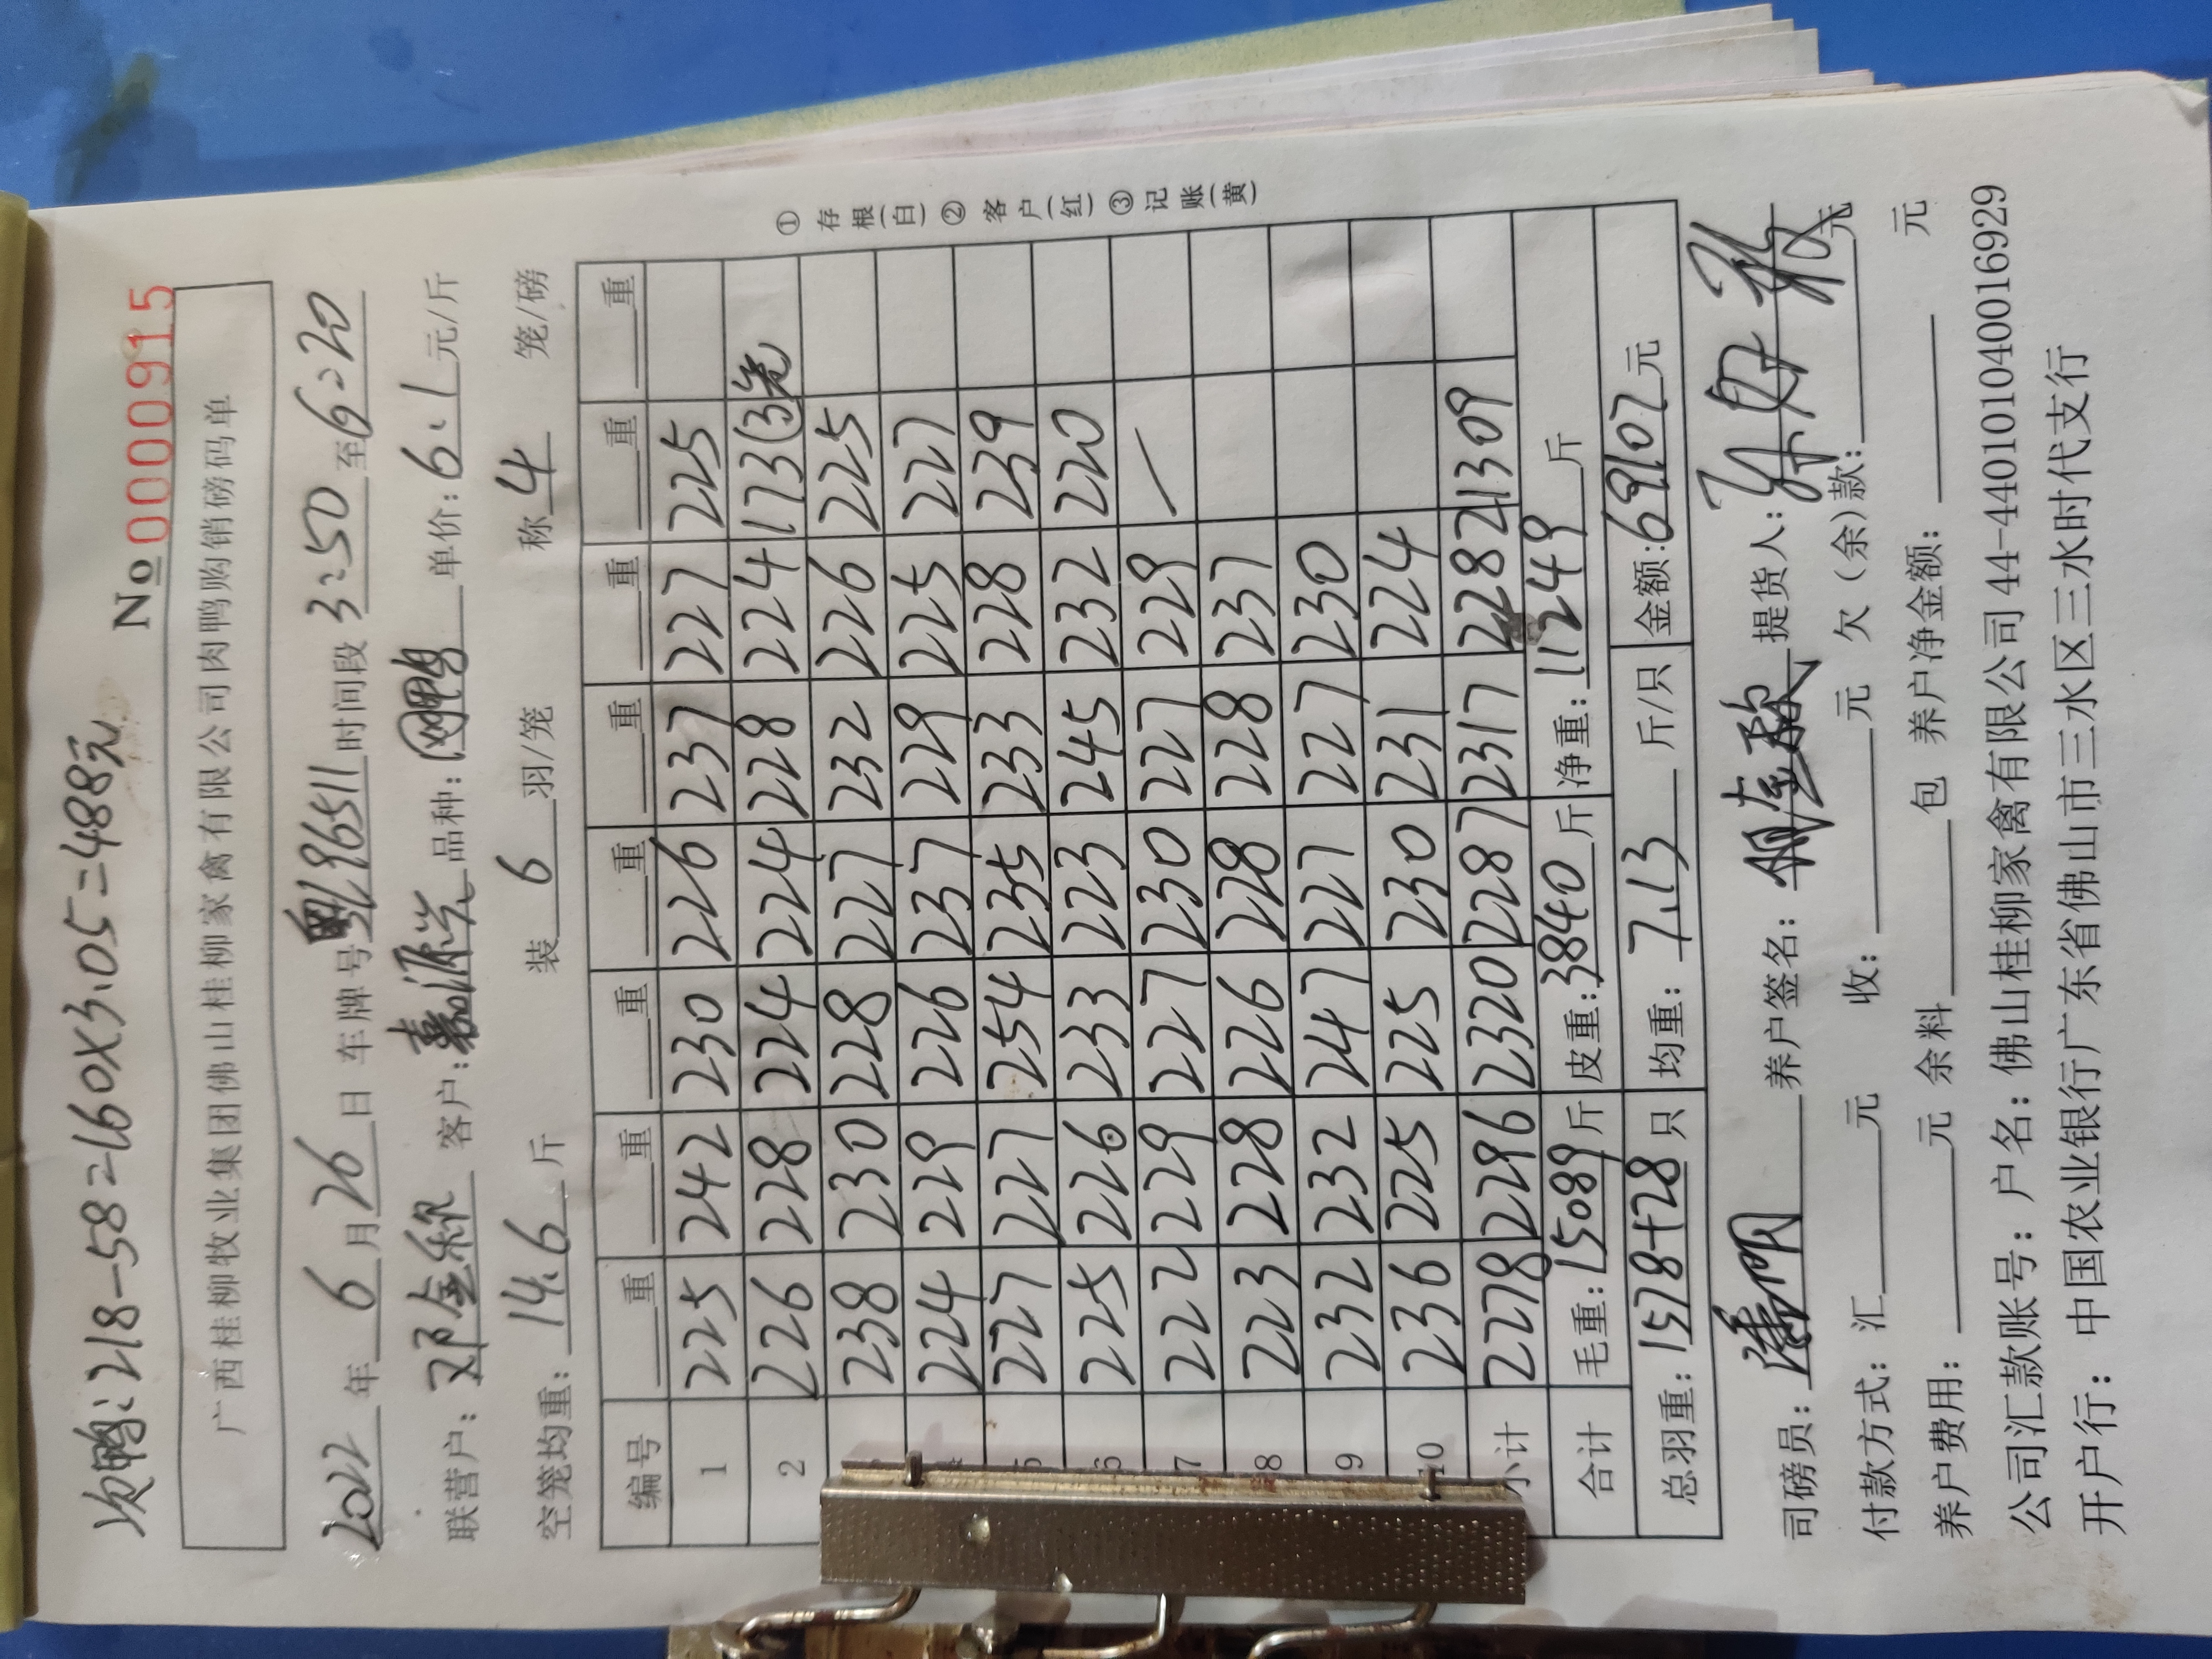 次鸭:218-58=160X3.05=488元
No 0000915
广西桂柳牧业集团佛山桂柳家禽有限公司肉鸭购销磅码单
2022年6月26日 车牌号粤L96511时间段3:50至6:20
联营户:邓金 客户:嘉源 品种:网鸭 单价:6.1元/斤
空笼均重:14.6斤 装6羽/笼 称4笼/磅
编号 重 重 重 重 重 重 重 重
1 225 242 230 226 237 227 225
2 226 228 224 224 228 224 173(3笼)
238 230 228 227 232 226 225
224 229 226 237 229 225 227
5 227 227 254 235 233 228 239
6 225 226 233 223 245 232 220
7 222 229 227 230 227 229 /
8 223 228 226 228 228 237
9 232 232 247 227 227 230
10 236 225 225 230 231 224
小计 2278 2296 2320 2287 2317 2282 1309
合计 毛重:15089斤 皮重:3840斤 净重:11249斤
总羽重:1578+28只 均重:7.13斤/只 金额:69107元
① 存根(白) ② 客户(红) ③ 记账(黄)
司磅员: 养户签名: 提货人:
付款方式:汇 元 收: 元 欠(余)款: 元
养户费用: 元 余料 包 养户净金额: 元
公司汇款账号:户名:佛山桂柳家禽有限公司44-440101040016929
开户行:中国农业银行广东省佛山市三水区三水时代支行